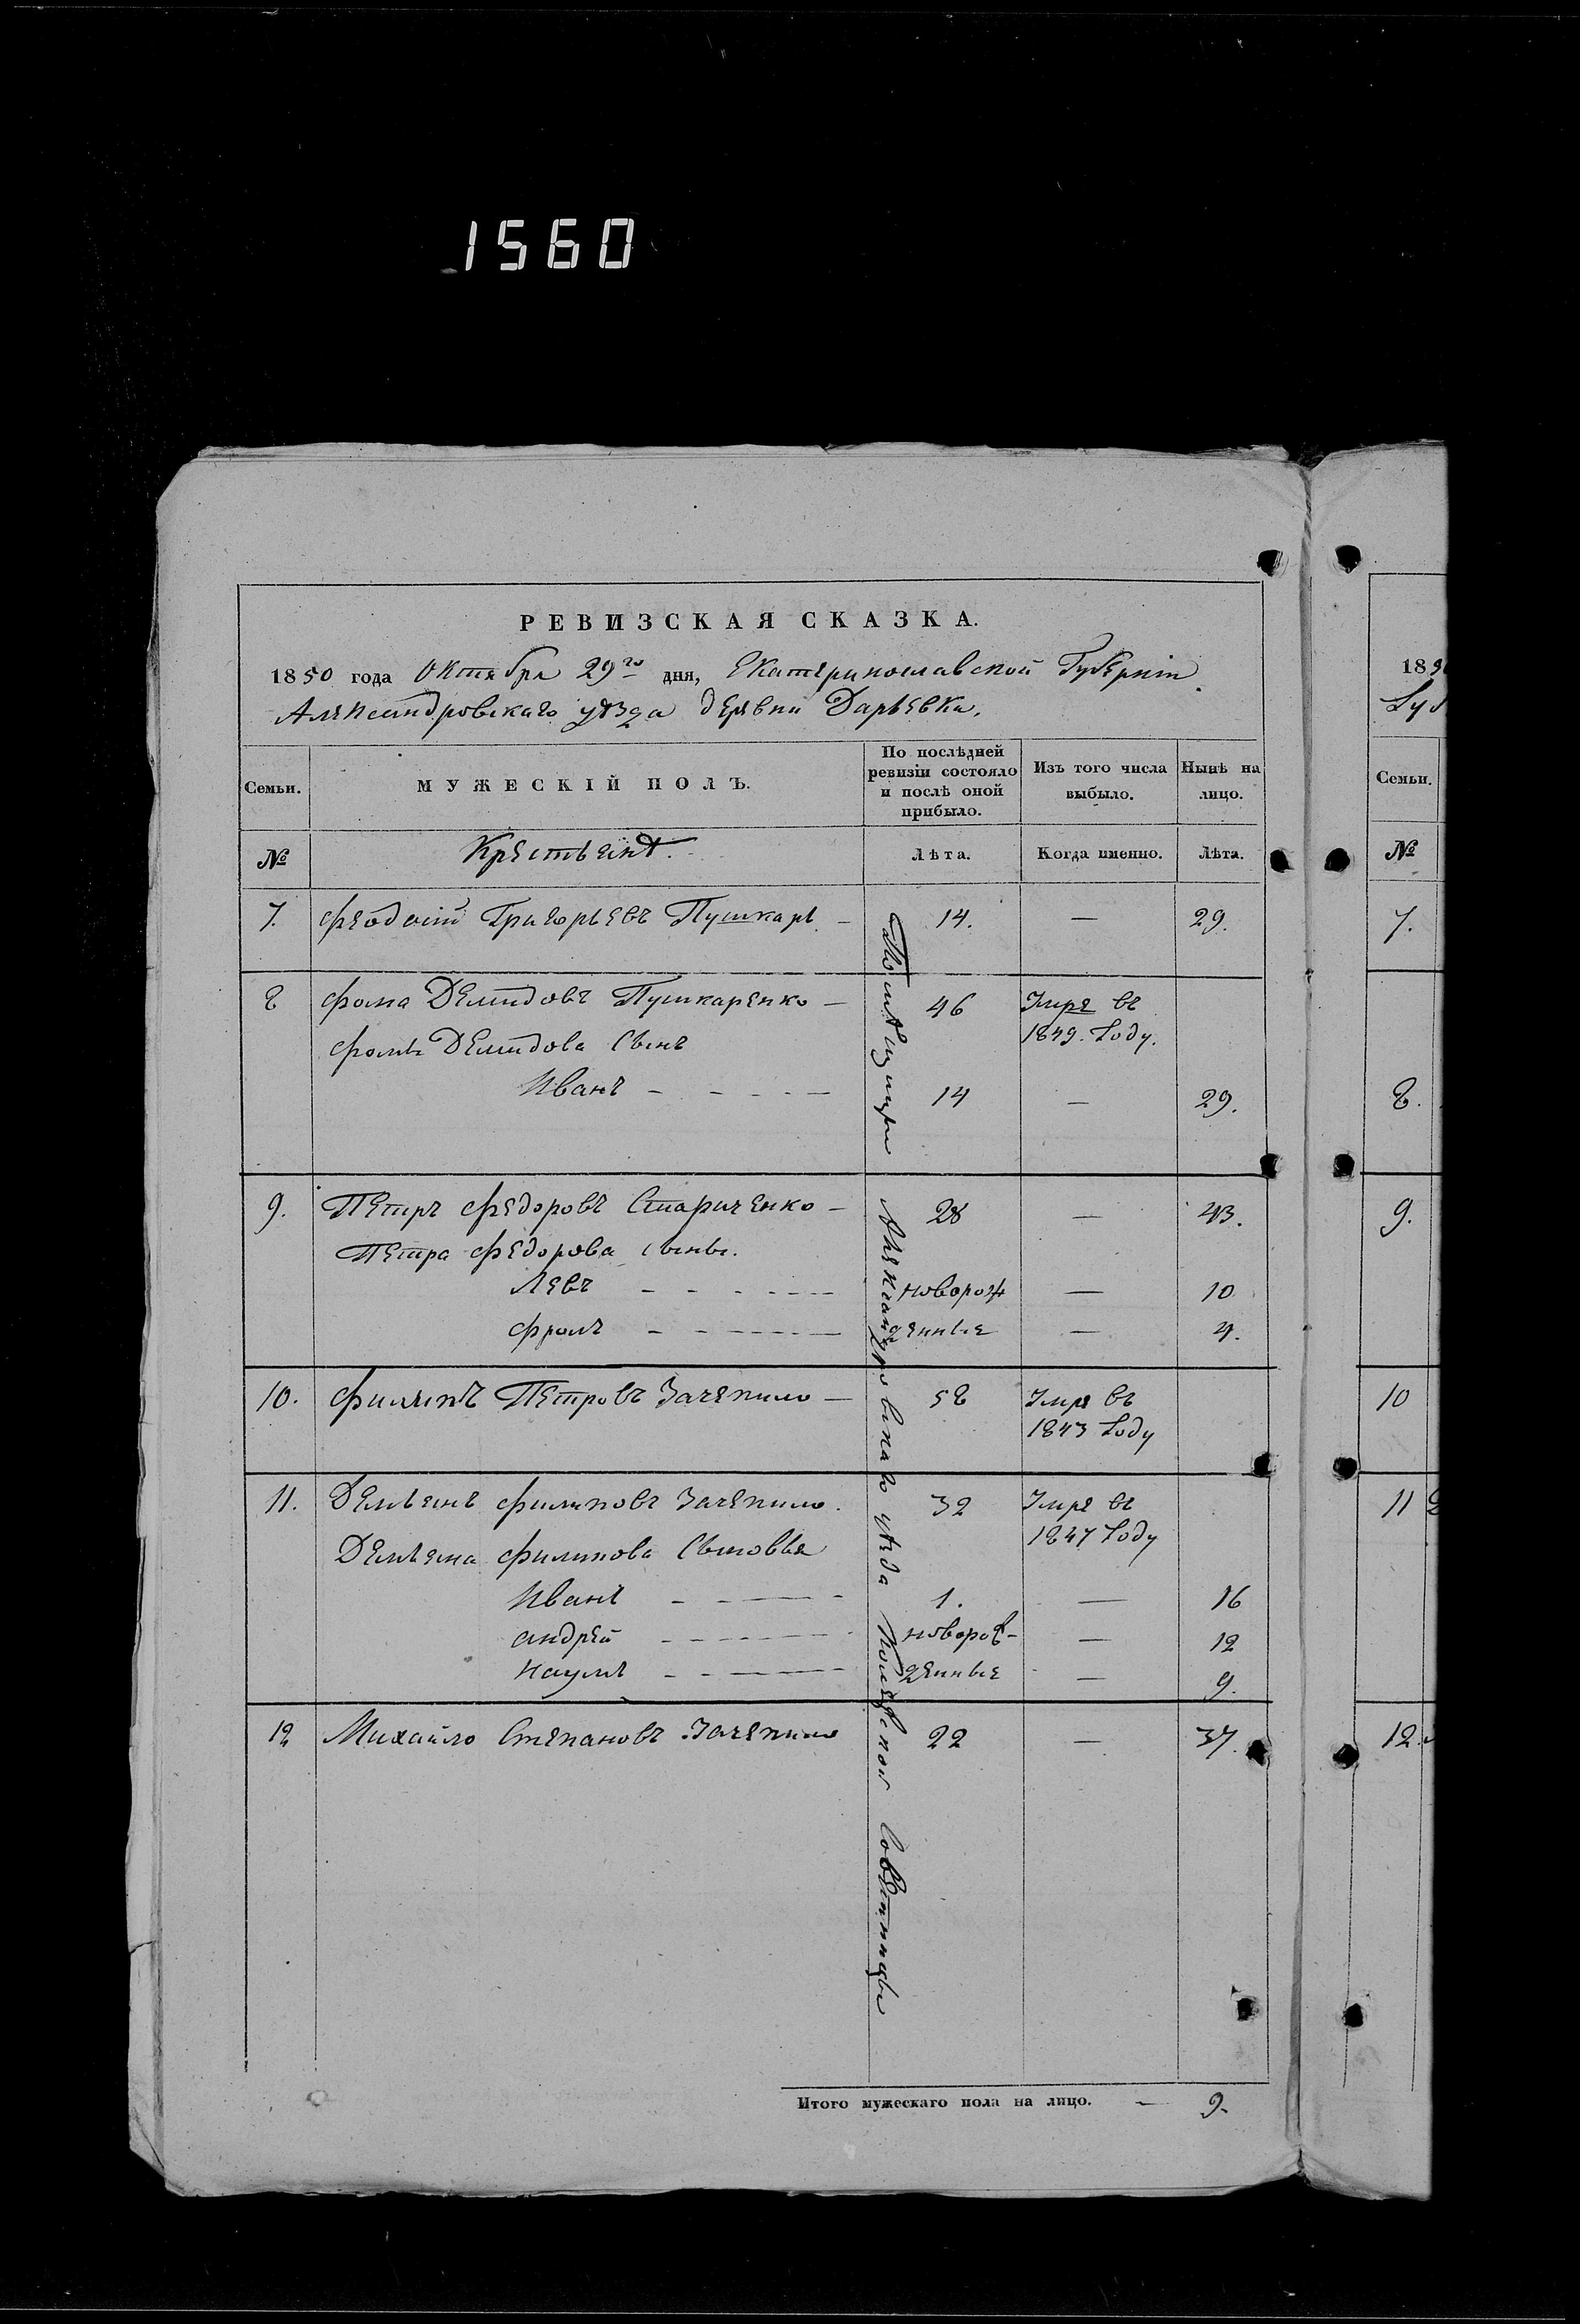 1560
РЕВИЗСКАЯ СКАЗКА.
1850 года Октября 29го дня, Екатеринославской Губерніи
Александровскаго уѣзда деревни Дарьевки.
Семьи. МУЖЕСКІЙ ПОЛЪ. По послѣдней ревизіи состояло и послѣ оной прибыло. Изъ того числа выбыло. Нынѣ на лицо.
№ Крестьянѣ. Лѣта. Когда именно. Лѣта.
7. Феодосій Григорьевъ Пушкарь — 14. — 29.
8 Фома Демидовъ Пушкаренко — 46 Умре въ 1849. Году.
Фомы Демидова Сынъ
Иванъ — 14 — 29.
9. Петръ Федоровъ Стариченко — 28 — 43.
Петра Федорова сыны.
Левъ — новорож — 10
Фролъ — денные — 4.
10. Филипъ Петровъ Зачепило — 58 Умре въ 1843 Году
11. Демьянъ Филиповъ Зачепило. 32 Умре въ 1847 Году
Демьяна Филипова Сыновья
Иванъ — 1. — 16
андрей — новорож- — 12
Наумъ — денные — 9.
12 Михайло Степановъ Зачепило 22 — 37.
Помѣщицы Александровскаго уѣзда
Итого мужескаго пола на лицо. — 9.
185
Семьи.
№
7.
8.
9.
10
11
12.